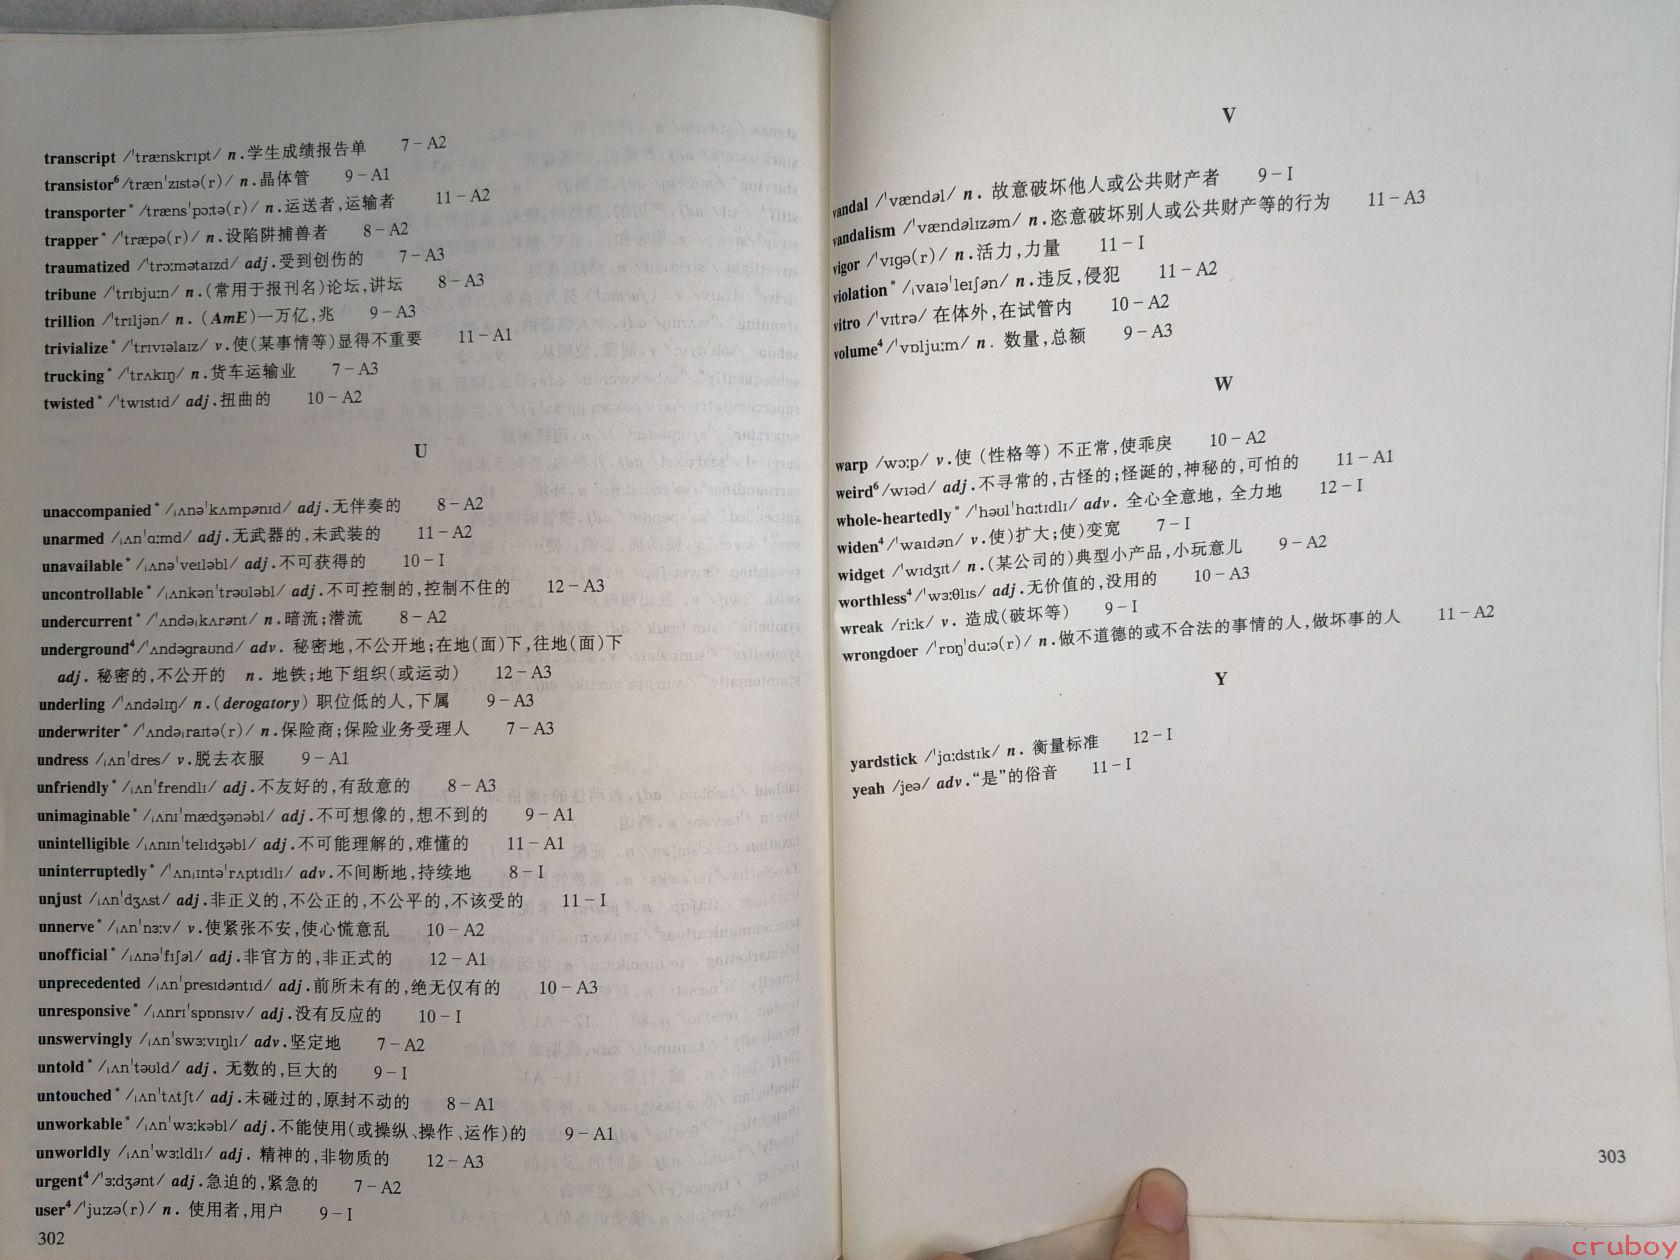 transcript /ˈtrænskrɪpt/ n.学生成绩报告单 7-A2
transistor⁶/trænˈzɪstə(r)/ n.晶体管 9-A1
transporter*/trænsˈpɔːtə(r)/ n.运送者,运输者 11-A2
trapper*/ˈtræpə(r)/ n.设陷阱捕兽者 8-A2
traumatized /ˈtrɔːmətaɪzd/ adj.受到创伤的 7-A3
tribune /ˈtrɪbjuːn/ n.(常用于报刊名)论坛,讲坛 8-A3
trillion /ˈtrɪljən/ n. (AmE)一万亿,兆 9-A3
trivialize*/ˈtrɪvɪəlaɪz/ v.使(某事情等)显得不重要 11-A1
trucking*/ˈtrʌkɪŋ/ n.货车运输业 7-A3
twisted*/ˈtwɪstɪd/ adj.扭曲的 10-A2
U
unaccompanied*/ˌʌnəˈkʌmpənɪd/ adj.无伴奏的 8-A2
unarmed /ˌʌnˈɑːmd/ adj.无武器的,未武装的 11-A2
unavailable*/ˌʌnəˈveɪləbl/ adj.不可获得的 10-I
uncontrollable*/ˌʌnkənˈtrəuləbl/ adj.不可控制的,控制不住的 12-A3
undercurrent*/ˈʌndəˌkʌrənt/ n.暗流;潜流 8-A2
underground⁴/ˈʌndəgraʊnd/ adv. 秘密地,不公开地;在地(面)下,往地(面)下
adj. 秘密的,不公开的 n. 地铁;地下组织(或运动) 12-A3
underling /ˈʌndəlɪŋ/ n.(derogatory) 职位低的人,下属 9-A3
underwriter*/ˈʌndəˌraɪtə(r)/ n.保险商;保险业务受理人 7-A3
undress /ˌʌnˈdres/ v.脱去衣服 9-A1
unfriendly*/ˌʌnˈfrendlɪ/ adj.不友好的,有敌意的 8-A3
unimaginable*/ˌʌnɪˈmædʒənəbl/ adj.不可想像的,想不到的 9-A1
unintelligible /ˌʌnɪnˈtelɪdʒəbl/ adj.不可能理解的,难懂的 11-A1
uninterruptedly*/ˈʌnˌɪntəˈrʌptɪdlɪ/ adv.不间断地,持续地 8-I
unjust /ˌʌnˈdʒʌst/ adj.非正义的,不公正的,不公平的,不该受的 11-I
unnerve*/ˌʌnˈnɜːv/ v.使紧张不安,使心慌意乱 10-A2
unofficial*/ˌʌnəˈfɪʃəl/ adj.非官方的,非正式的 12-A1
unprecedented /ˌʌnˈpresɪdəntɪd/ adj.前所未有的,绝无仅有的 10-A3
unresponsive*/ˌʌnrɪˈspɒnsɪv/ adj.没有反应的 10-I
unswervingly /ˌʌnˈswɜːvɪŋlɪ/ adv.坚定地 7-A2
untold*/ˌʌnˈtəʊld/ adj. 无数的,巨大的 9-I
untouched*/ˌʌnˈtʌtʃt/ adj.未碰过的,原封不动的 8-A1
unworkable*/ˌʌnˈwɜːkəbl/ adj.不能使用(或操纵、操作、运作)的 9-A1
unworldly /ˌʌnˈwɜːldlɪ/ adj. 精神的,非物质的 12-A3
urgent⁴/ˈɜːdʒənt/ adj.急迫的,紧急的 7-A2
user⁴/ˈjuːzə(r)/ n. 使用者,用户 9-I
302
V
vandal /ˈvændəl/ n. 故意破坏他人或公共财产者 9-I
vandalism /ˈvændəlɪzəm/ n.恣意破坏别人或公共财产等的行为 11-A3
vigor /ˈvɪgə(r)/ n.活力,力量 11-I
violation*/ˌvaɪəˈleɪʃən/ n.违反,侵犯 11-A2
vitro /ˈvɪtrə/ 在体外,在试管内 10-A2
volume⁴/ˈvɒljuːm/ n. 数量,总额 9-A3
W
warp /wɔːp/ v.使 (性格等) 不正常,使乖戾 10-A2
weird⁶/wɪəd/ adj.不寻常的,古怪的;怪诞的,神秘的,可怕的 11-A1
whole-heartedly*/ˈhəʊlˈhɑːtɪdlɪ/ adv. 全心全意地, 全力地 12-I
widen⁴/ˈwaɪdən/ v.使)扩大;使)变宽 7-I
widget /ˈwɪdʒɪt/ n.(某公司的)典型小产品,小玩意儿 9-A2
worthless⁴/ˈwɜːθlɪs/ adj.无价值的,没用的 10-A3
wreak /riːk/ v. 造成(破坏等) 9-I
wrongdoer /ˈrɒŋˈduːə(r)/ n.做不道德的或不合法的事情的人,做坏事的人 11-A2
Y
yardstick /ˈjɑːdstɪk/ n. 衡量标准 12-I
yeah /jeə/ adv.“是”的俗音 11-I
303
cruboy